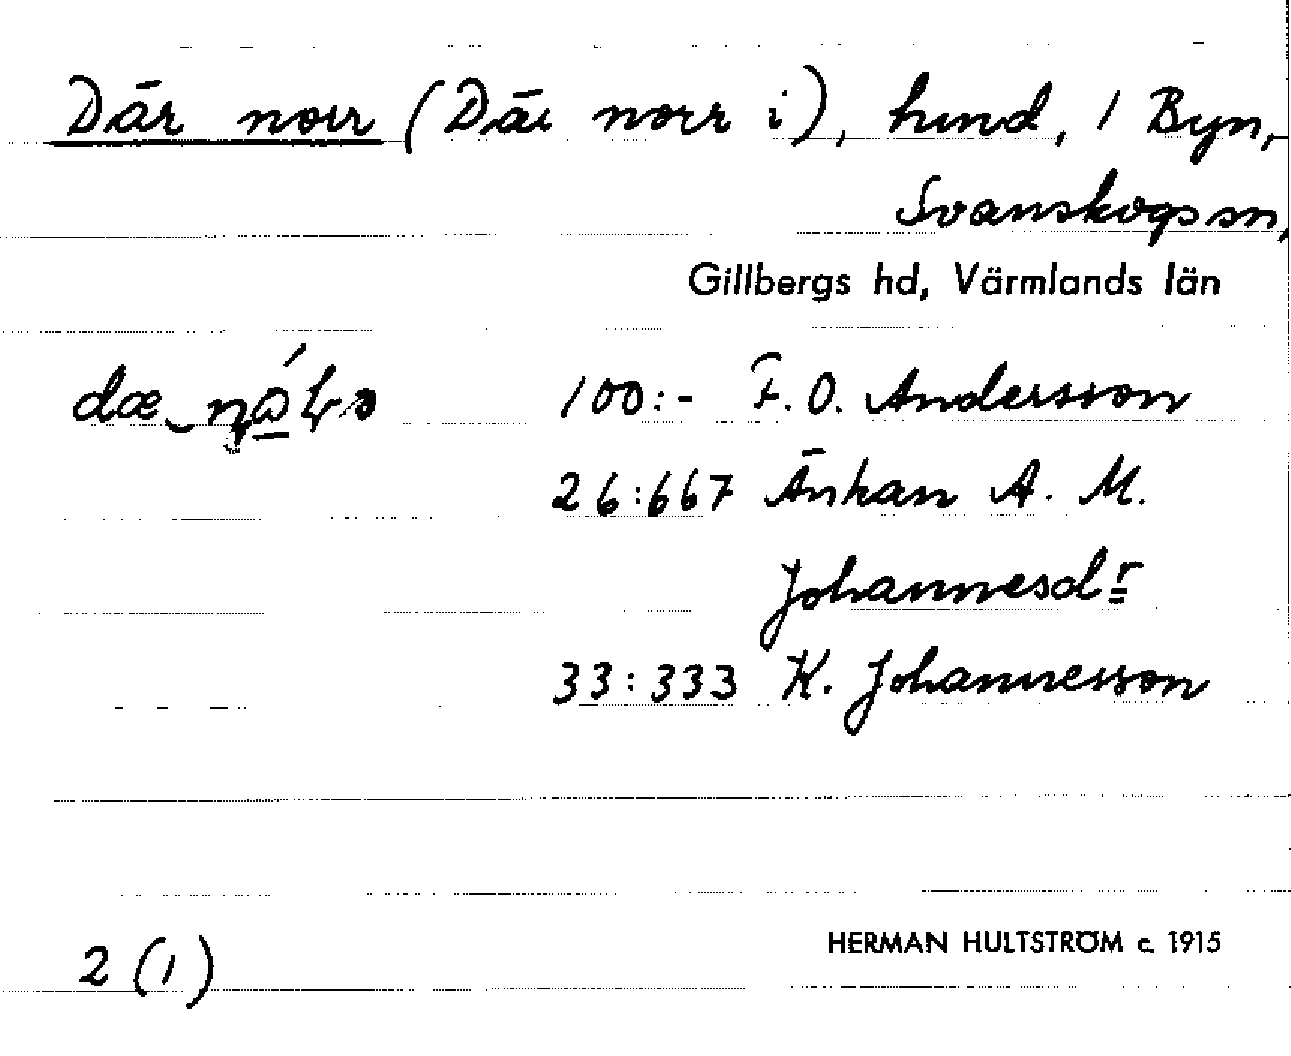 Där norr (Där norr i), hmd, 1 Byn,
Svanskogs sn,
Gillbergs hd, Värmlands län
100:- F. O. Andersson
26:667 Änkan A. M.
Johannesdr
33:333 K. Johannesson
2 (1)
HERMAN HULTSTRÖM c. 1915